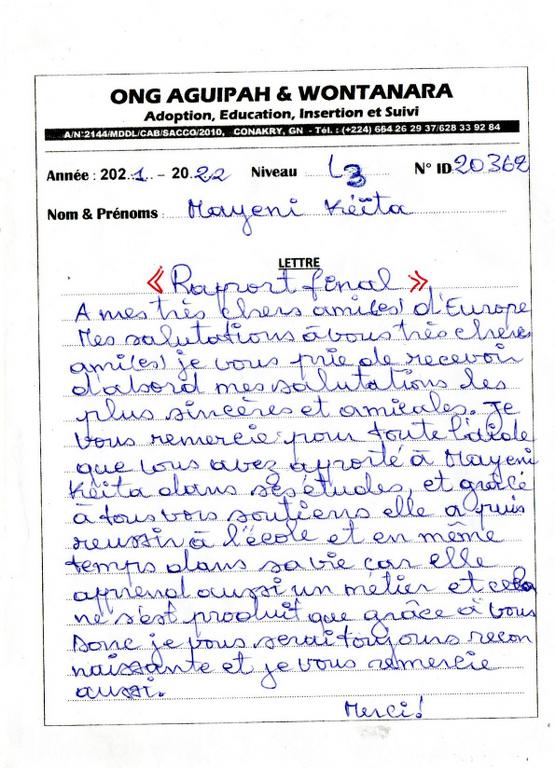 ONG AGUIPAH & WONTANARA
Adoption, Education, Insertion et Suivi
A/N°2144/MDDL/CAB/SACCO/2010, CONAKRY, GN - Tél. : (+224) 664 26 29 37/628 33 92 84
Année : 2021 - 2022 Niveau L3 N° ID 20362
Nom & Prénoms : Mayeni Kéïta
LETTRE
« Raport final »
A mes très chers ami(es) d'Europe
Mes salutations à vous très chères
ami(es) je vous prie de recevoir
d'abord mes salutations les
plus sincères et amicales. Je
vous remercie pour toute l'aide
que vous avez aporté à Mayeni
Kéïta dans ses études, et grâce
à tous vos soutiens elle a puis
reussir à l'école et en même
temps dans sa vie car elle
apprend aussi un métier et cela
ne s'est produit que grâce à vous
Donc je vous serai toujours recon
naissante et je vous remercie
aussi.
Merci!